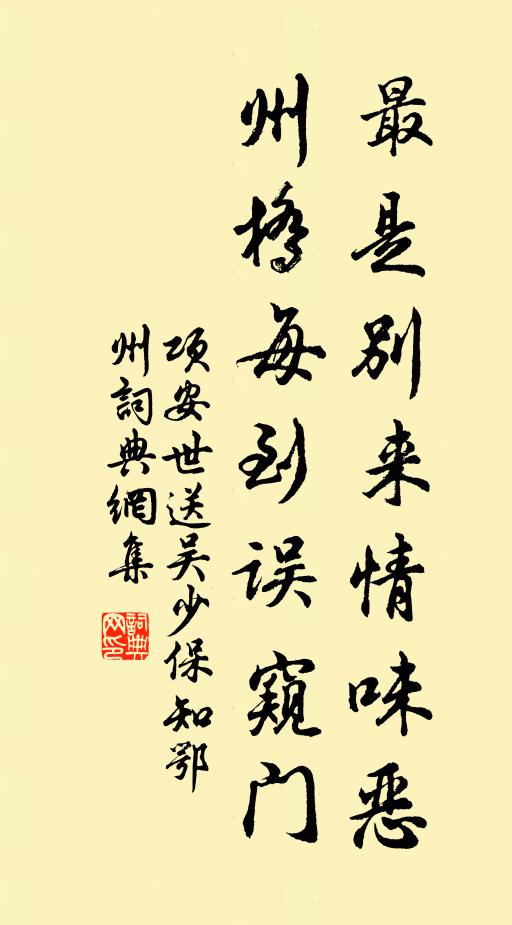 最是别来情味恶
州橋每到误窺门
项安世送吴少保知鄂
州詞典網集
詞典
网印